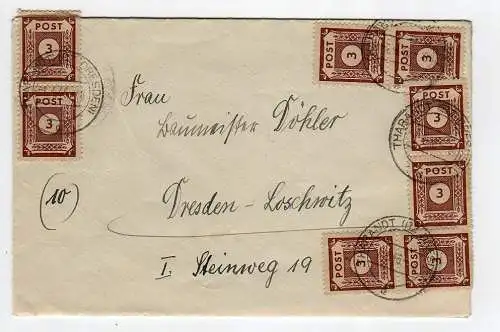 POST
3
POST
3
POST
3
POST
3
POST
3
POST
3
POST
3
POST
3
THARANDT
THARANDT
Frau
Baumeister Döhler
(10)
Dresden - Loschwitz
I. Steinweg 19